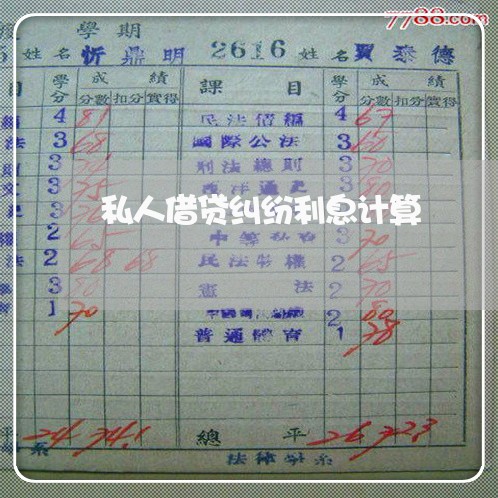 7788.com
學期
姓名 忻鼎明 2616 姓名 賈泰德
目 學分 成績 課目 學分 成績
分數 扣分 實得 分數 扣分 實得
4 81 民法債編 4 67
法 3 68 國際公法 3 60
3 刑法總則 3 70
3 75 西洋通史 3 80
私人借贷纠纷利息计算
2 65 3 70
法 2 68 68 民法物權 2 65
3 80 憲法 2 70
1 70 2 80
普通體育 1 78
平 24 74.1 總平 26 72.3
系 法律學系